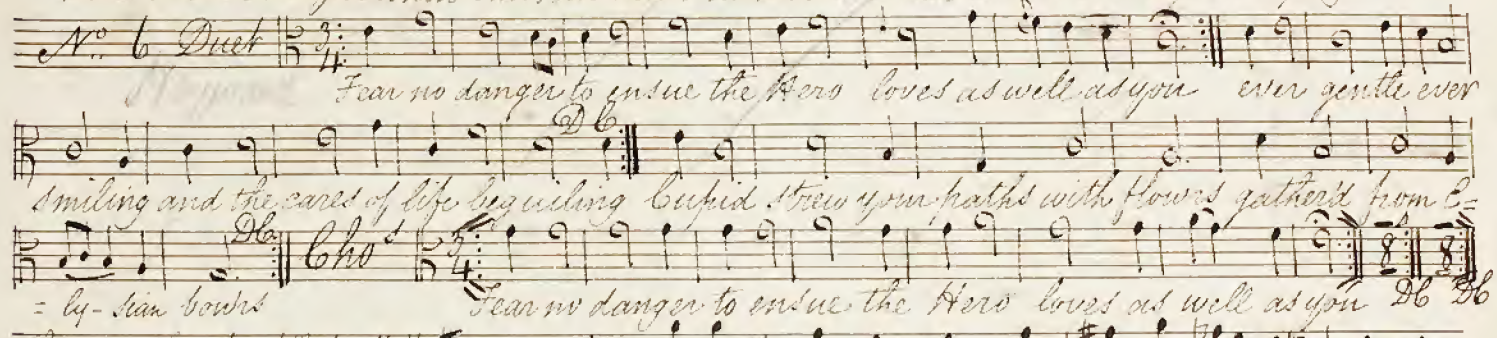 No. 6 Duet 3/4
Fear no danger to ensue the Hero loves as well as you ever gentle ever
DC
smiling and the cares of life beguiling Cupid strew your paths with flow'rs gather'd from E=
DC Chos 3/4
=ly-sian bow'rs Fear no danger to ensue the Hero loves as well as you DC DC